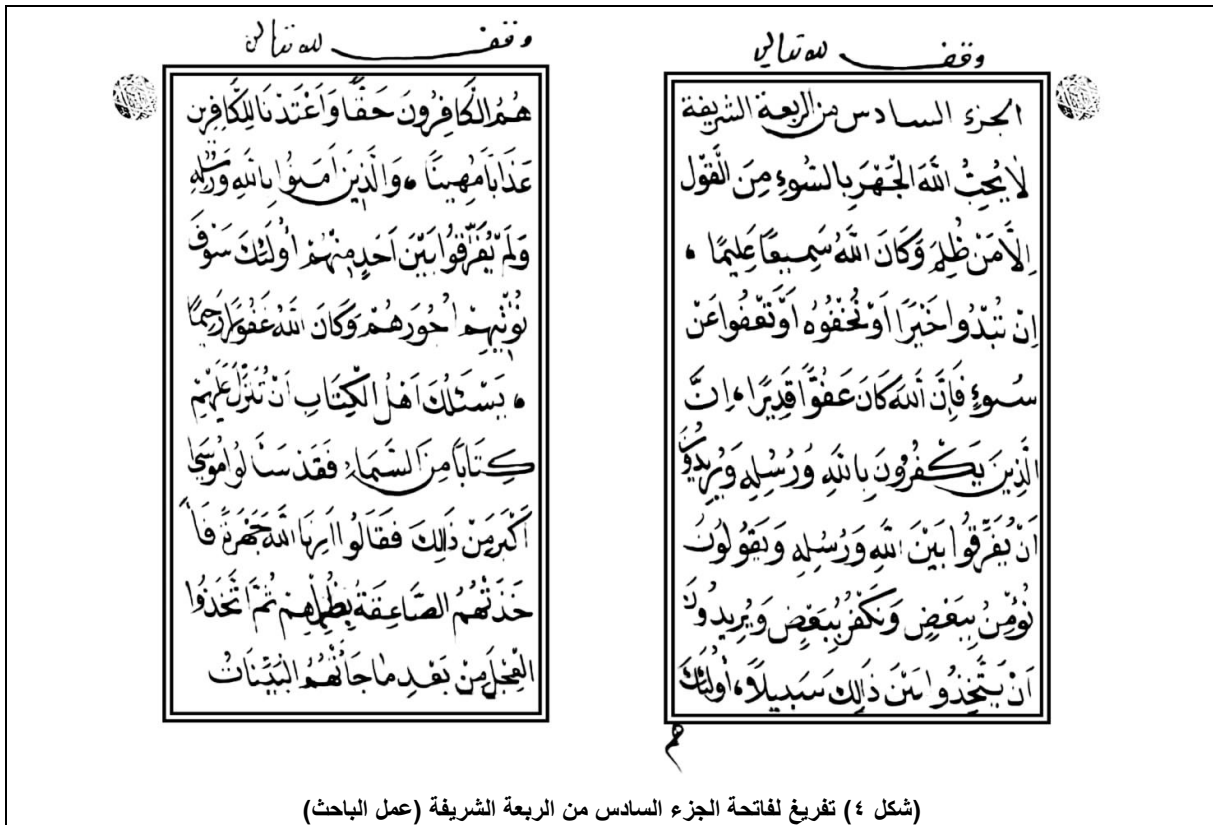 وقف لله تعالى
الجزء السادس من الربعة الشريفة
لَا يُحِبُّ اللَّهُ الْجَهْرَ بِالسُّوءِ مِنَ الْقَوْلِ
اِلَّا مَنْ ظُلِمَ وَكَانَ اللَّهُ سَمِيعًا عَلِيمًا
اِنْ تُبْدُوا خَيْرًا اَوْ تُخْفُوهُ اَوْ تَعْفُوا عَنْ
سُوءٍ فَاِنَّ اللَّهَ كَانَ عَفُوًّا قَدِيرًا اِنَّ
الَّذِينَ يَكْفُرُونَ بِاللَّهِ وَرُسُلِهِ وَيُرِيدُونَ
اَنْ يُفَرِّقُوا بَيْنَ اللَّهِ وَرُسُلِهِ وَيَقُولُونَ
نُؤْمِنُ بِبَعْضٍ وَنَكْفُرُ بِبَعْضٍ وَيُرِيدُونَ
اَنْ يَتَّخِذُوا بَيْنَ ذَالِكَ سَبِيلًا اُولَئِكَ
هم
وقف لله تعالى
هُمُ الْكَافِرُونَ حَقًّا وَاَعْتَدْنَا لِلْكَافِرِينَ
عَذَابًا مُهِينًا وَالَّذِينَ اَمَنُوا بِاللَّهِ وَرُسُلِهِ
وَلَمْ يُفَرِّقُوا بَيْنَ اَحَدٍ مِنْهُمْ اُولَئِكَ سَوْفَ
نُؤْتِيهِمْ اُجُورَهُمْ وَكَانَ اللَّهُ غَفُورًا رَحِيمًا
يَسْئَلُكَ اَهْلُ الْكِتَابِ اَنْ تُنَزِّلَ عَلَيْهِمْ
كِتَابًا مِنَ السَّمَاءِ فَقَدْ سَاَلُوا مُوسَى
اَكْبَرَ مِنْ ذَالِكَ فَقَالُوا اَرِنَا اللَّهَ جَهْرَةً فَاَ
خَذَتْهُمُ الصَّاعِقَةُ بِظُلْمِهِمْ ثُمَّ اتَّخَذُوا
الْعِجْلَ مِنْ بَعْدِ مَا جَاءَتْهُمُ الْبَيِّنَاتُ
(شكل ٤) تفريغ لفاتحة الجزء السادس من الربعة الشريفة (عمل الباحث)